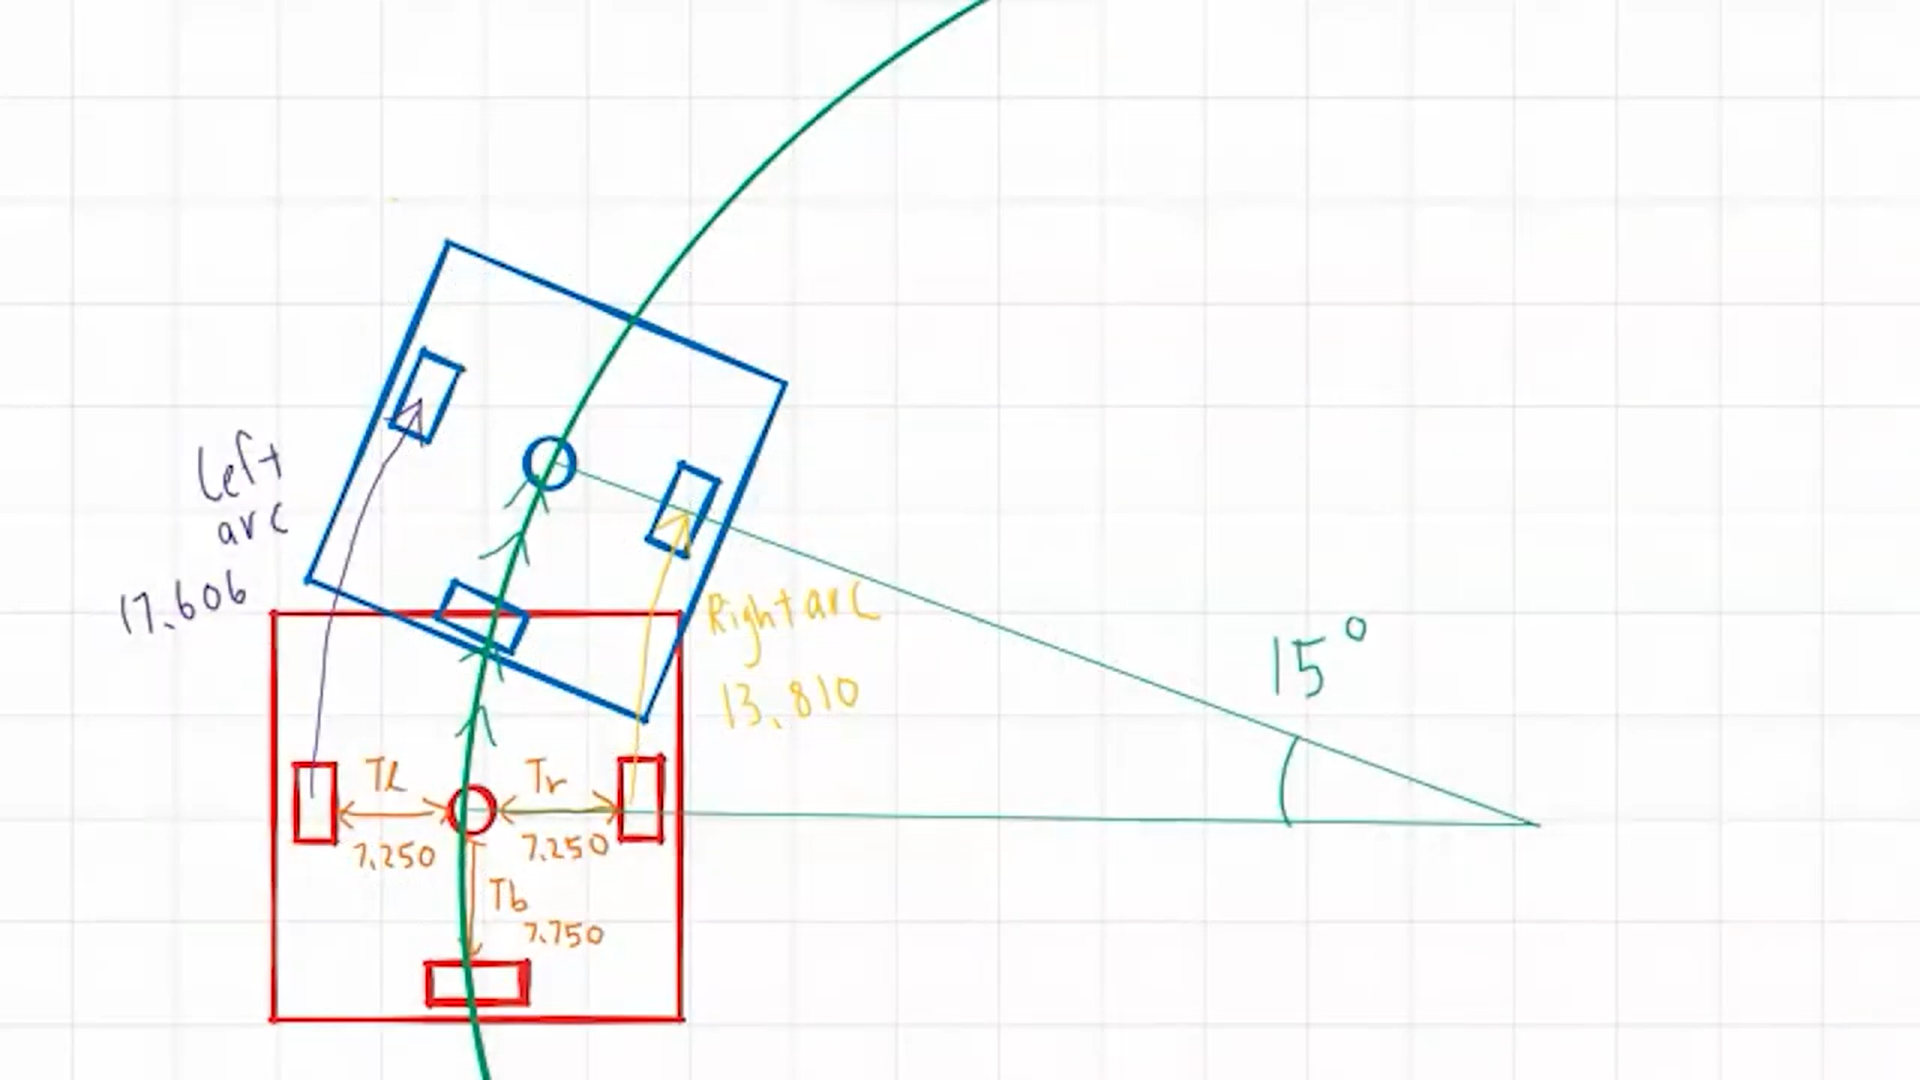 left
arc
17.606
Right arc
13.810
15°
Tl
Tr
7.250
7.250
Tb
7.750